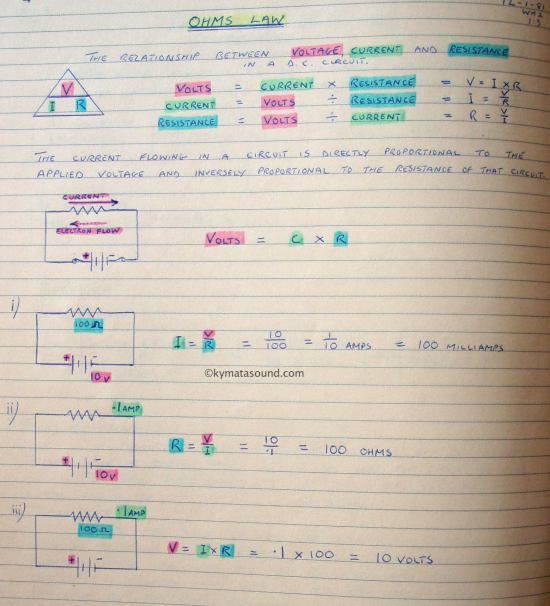 12-1-81
OHMS LAW
THE RELATIONSHIP BETWEEN VOLTAGE, CURRENT AND RESISTANCE
IN A D.C. CIRCUIT.
V
I R
VOLTS = CURRENT × RESISTANCE = V = I × R
CURRENT = VOLTS ÷ RESISTANCE = I = V/R
RESISTANCE = VOLTS ÷ CURRENT = R = V/I
THE CURRENT FLOWING IN A CIRCUIT IS DIRECTLY PROPORTIONAL TO THE
APPLIED VOLTAGE AND INVERSELY PROPORTIONAL TO THE RESISTANCE OF THAT CIRCUIT.
CURRENT
ELECTRON FLOW
+ -
VOLTS = C × R
i)
100Ω
+ -
10V
I = V/R = 10/100 = 1/10 AMPS = 100 MILLIAMPS
©kymatasound.com
ii)
·1AMP
+ -
10V
R = V/I = 10/·1 = 100 OHMS
iii)
·1AMP
100Ω
+ -
V = I × R = ·1 × 100 = 10 VOLTS